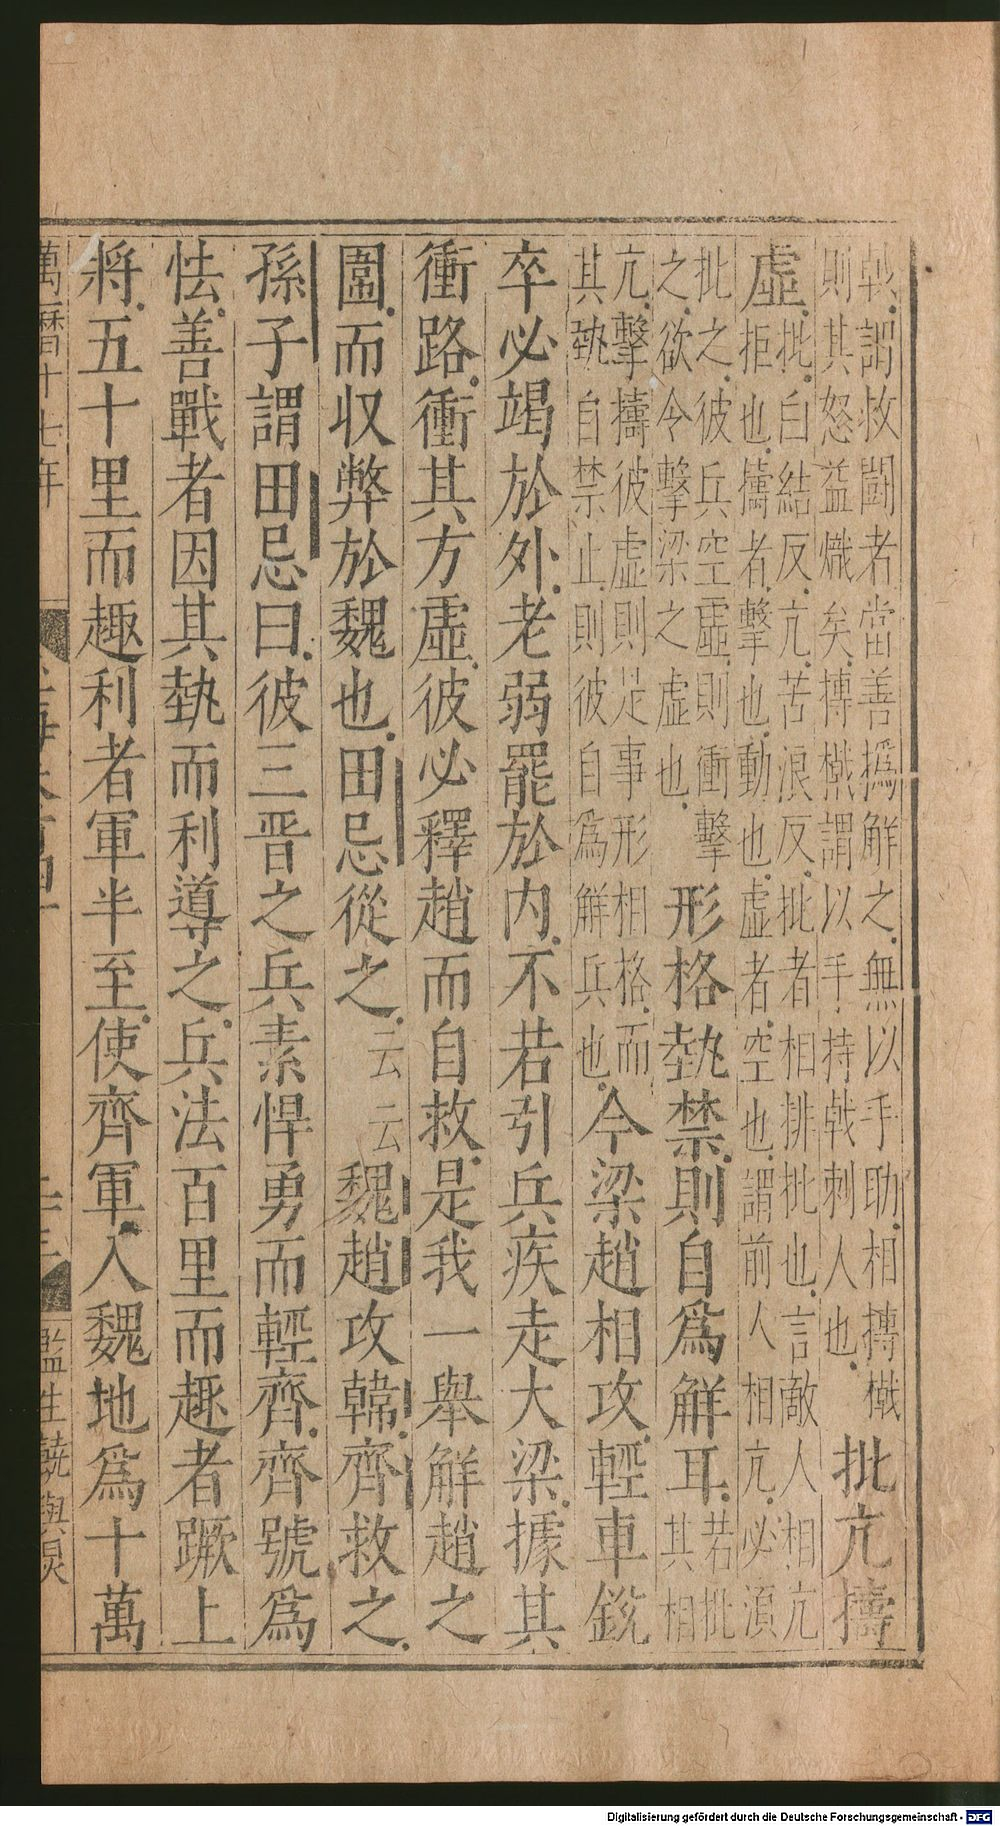 戟謂救鬪者當善撝解之無以手助相摶撠
則其怒益熾矣摶撠謂以手持戟刺人也
批亢擣
虛
批白結反亢苦浪反批者相排批也言敵人相亢
拒也擣者擊也動也虛者空也謂前人相亢必須
批之彼兵空虛則衝擊
之欲令擊梁之虛也
形格埶禁則自爲解耳
若批
其相
亢擊擣彼虛則是事形相格而
其埶自禁止則彼自爲解兵也
今梁趙相攻輕車銳
卒必竭於外老弱罷於内不若引兵疾走大梁據其
衝路衝其方虛彼必釋趙而自救是我一舉解趙之
圍而収弊於魏也田忌從之云云魏趙攻韓齊救之
孫子謂田忌曰彼三晋之兵素悍勇而輕齊齊號爲
怯善戰者因其埶而利導之兵法百里而趣者蹶上
將五十里而趣利者軍半至使齊軍入魏地爲十萬
萬曆十七年
監生饒與
Digitalisierung gefördert durch die Deutsche Forschungsgemeinschaft - DFG